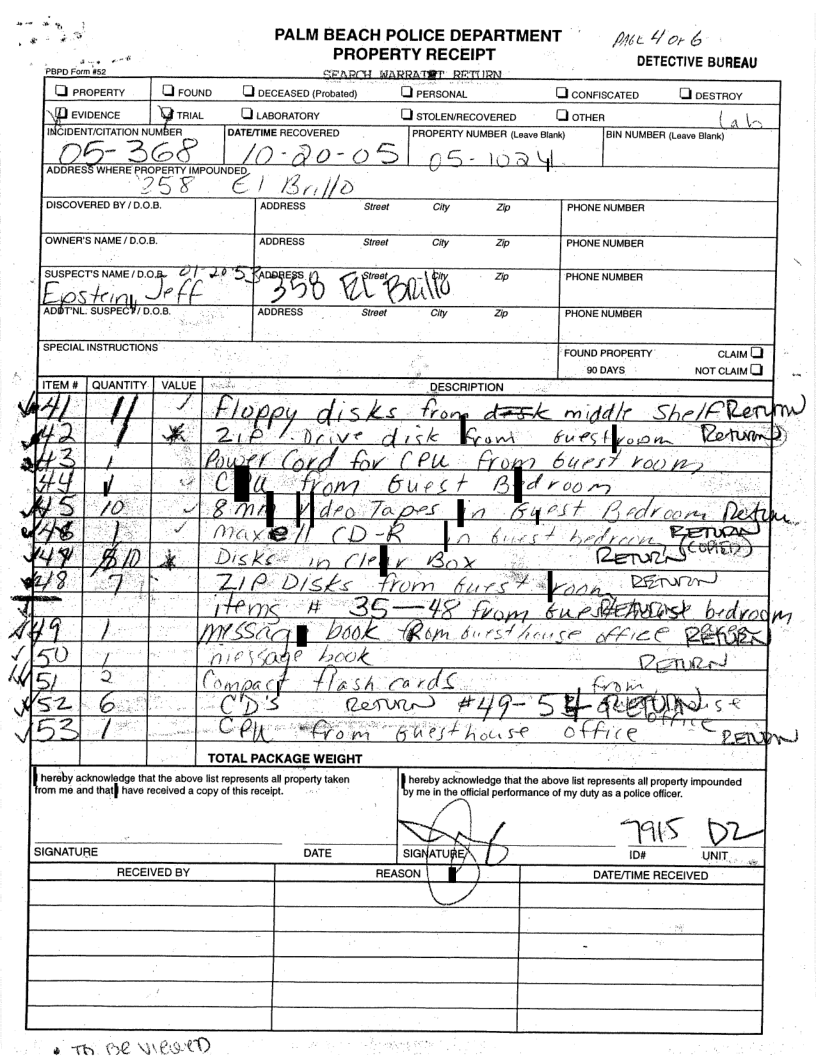 PALM BEACH POLICE DEPARTMENT
PROPERTY RECEIPT
PAGE 4 OF 6
DETECTIVE BUREAU
PBPD Form #52
SEARCH WARRANT RETURN
PROPERTY FOUND DECEASED (Probated) PERSONAL CONFISCATED DESTROY
EVIDENCE TRIAL LABORATORY STOLEN/RECOVERED OTHER Lab
INCIDENT/CITATION NUMBER DATE/TIME RECOVERED PROPERTY NUMBER (Leave Blank) BIN NUMBER (Leave Blank)
05-368 10-20-05 05-1024
ADDRESS WHERE PROPERTY IMPOUNDED
358 El Brillo
DISCOVERED BY / D.O.B. ADDRESS Street City Zip PHONE NUMBER
OWNER'S NAME / D.O.B. ADDRESS Street City Zip PHONE NUMBER
SUSPECT'S NAME / D.O.B. 01-20-53 ADDRESS Street City Zip PHONE NUMBER
Epstein, Jeff 358 El Brillo
ADDT'NL. SUSPECT / D.O.B. ADDRESS Street City Zip PHONE NUMBER
SPECIAL INSTRUCTIONS
FOUND PROPERTY CLAIM
90 DAYS NOT CLAIM
ITEM # QUANTITY VALUE DESCRIPTION
41 11 Floppy disks from desk middle Shelf Return
42 1 ZIP Drive disk from Guest room Return
43 1 Power Cord for CPU from Guest room
44 1 CPU from Guest Bedroom
45 10 8 mm Video Tapes in Guest Bedroom Return
46 1 maxell CD-R in Guest bedroom RETURN
47 10 Disks in Clear Box RETURN (COPIED)
48 7 ZIP Disks from Guest room RETURN
items # 35-48 from Guest bedroom
49 1 message book from Guesthouse office RETURN
50 1 message book RETURN
51 2 Compact flash cards from
52 6 CD's RETURN #49-53 office
53 1 CPU from Guesthouse office RETURN
TOTAL PACKAGE WEIGHT
I hereby acknowledge that the above list represents all property taken
from me and that I have received a copy of this receipt.
I hereby acknowledge that the above list represents all property impounded
by me in the official performance of my duty as a police officer.
7915 D2
SIGNATURE DATE SIGNATURE ID# UNIT
RECEIVED BY REASON DATE/TIME RECEIVED
• TO BE VIEWED